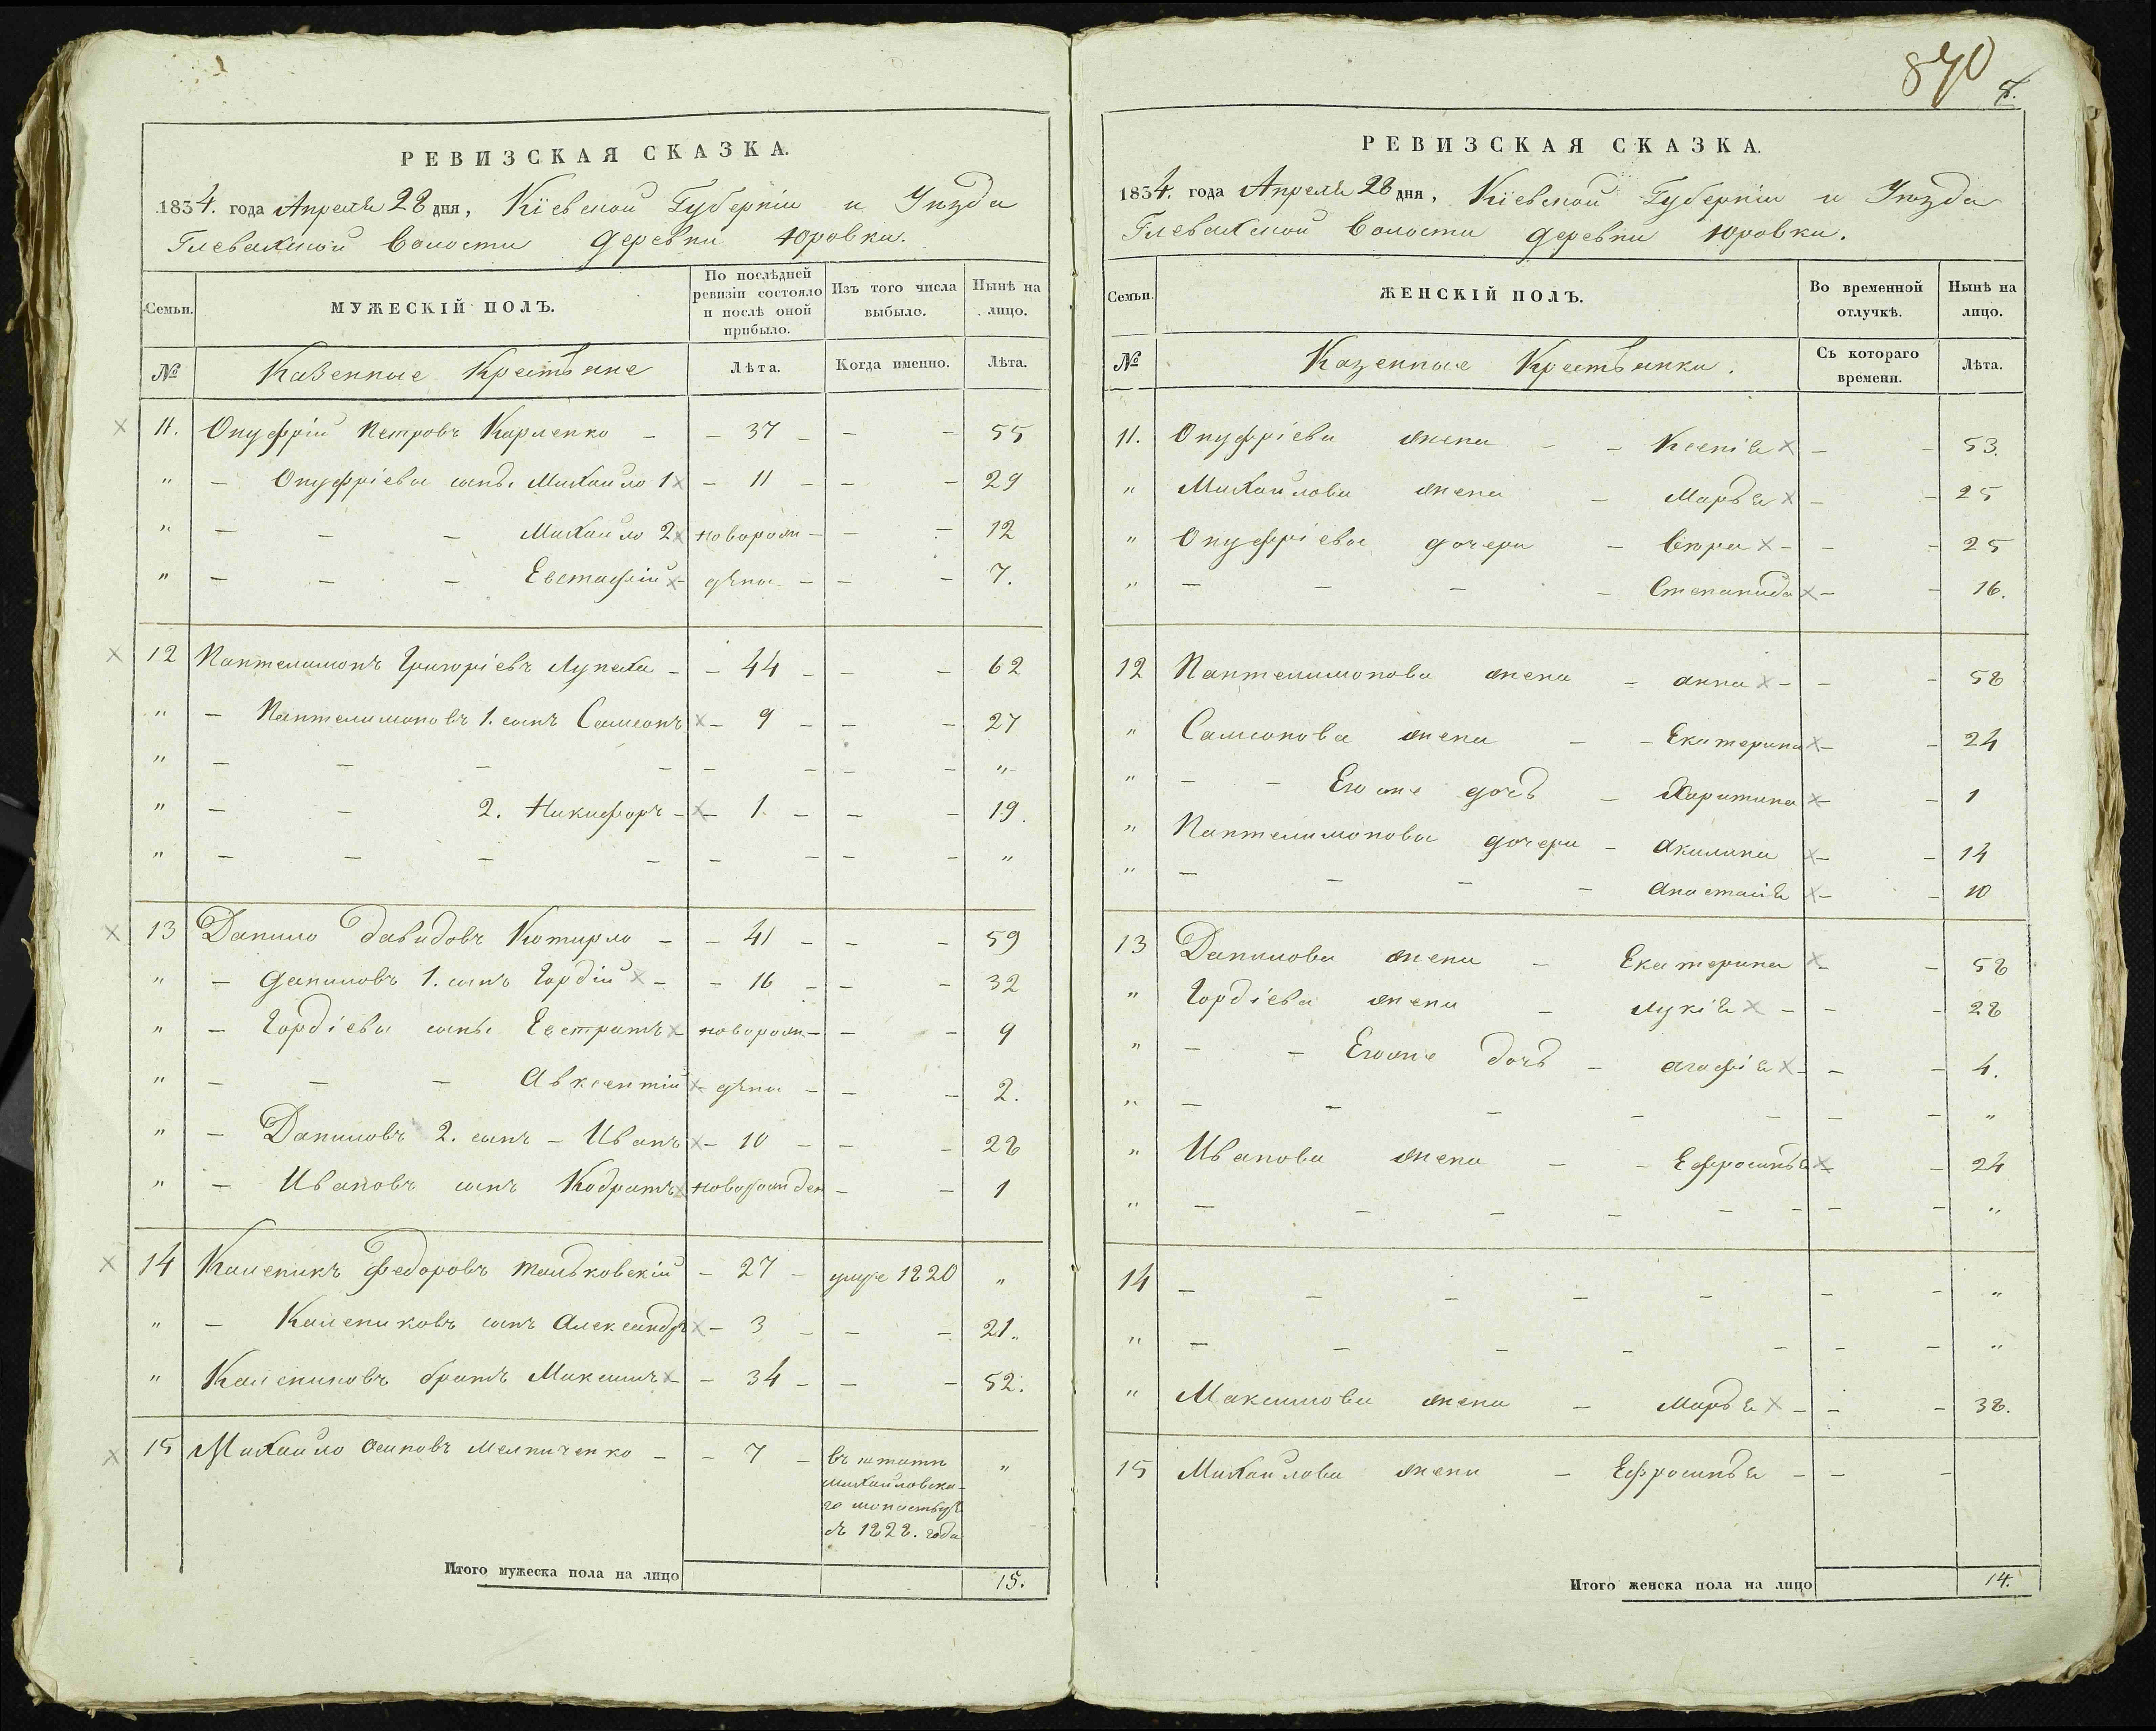 РЕВИЗСКАЯ СКАЗКА.
1834. года Апреля 28 дня, Кіевской Губерніи и Уѣзда
Глевахской Волости деревни Юровки.
Семьи. МУЖЕСКІЙ ПОЛЪ. По послѣдней ревизіи состояло и послѣ оной прибыло. Изъ того числа выбыло. Нынѣ на лицо.
№ Казенные Крестьяне Лѣта. Когда именно. Лѣта.
11. Онуфрій Петровъ Карпенко - - 37 - - - 55
" - Онуфріевы сыны Михайло 1 - 11 - - - 29
" - - - Михайло 2 новорож - - - 12
" - - - Евстафій - дѣны - - - 7.
12 Пантелимонъ Григоріевъ Лупаха - - 44 - - - 62
" - Пантелимоновъ 1. сынъ Самсонъ - 9 - - - 27
" - - - - - - - - "
" - - 2. Никифоръ - - 1. - - - 19.
" - - - - - - - - "
13 Данило Давидовъ Котирло - - 41 - - - 59
" - Даниловъ 1. сынъ Гордій - - 16 - - - 32
" - Гордіевы сыны Евстратъ новорож - - - 9
" - - - Авксентій - дѣны - - - 2.
" - Даниловъ 2. сынъ - Иванъ - 10 - - - 28
" - Ивановъ сынъ Кодратъ новорожден - - 1
14 Каленикъ Федоровъ - 27 - умре 1820 "
" - Калениковъ сынъ Александръ - 3 - - - 21.
" Калениковъ братъ Максимъ - - 34 - - - 52.
15 Михайло Осиповъ Мелниченко - - 7 - въ штатъ "
Михайловска-
го монастыря
съ 1828. года
Итого мужеска пола на лицо 15.
870
8.
РЕВИЗСКАЯ СКАЗКА.
1834. года Апреля 28 дня, Кіевской Губерніи и Уѣзда
Глевахской Волости деревни Юровки.
Семьи. ЖЕНСКІЙ ПОЛЪ. Во временной отлучкѣ. Нынѣ на лицо.
№ Казенные Крестьянки. Съ котораго времени. Лѣта.
11. Онуфріева жена - - Ксенія - - 53.
" Михайлова жена - Марья - - 25
" Онуфріевы дочери - - - - 25
" - - - - Степанида - - 16.
12 Пантелимонова жена - Анна - - - 58
" Самсонова жена - - Екатерина - - 24
" - - Егоже дочь - Харитина - - 1
" Пантелимоновы дочери - Акилина - - 14
" - - - - Анастасія - - 10
13 Данилова жена - Екатерина - - 58
" Гордіева жена - Лукія - - - 28
" - - Егоже дочь - Агафія - - - 4.
" - - - - - - - "
" Иванова жена - - Ефросинья - - 24
" - - - - - - - - "
14 - - - - - - - "
" - - - - - - - "
" Максимова жена - Марья - - - 38.
15 Михайлова жена - Ефросинья - - -
Итого женска пола на лицо 14.